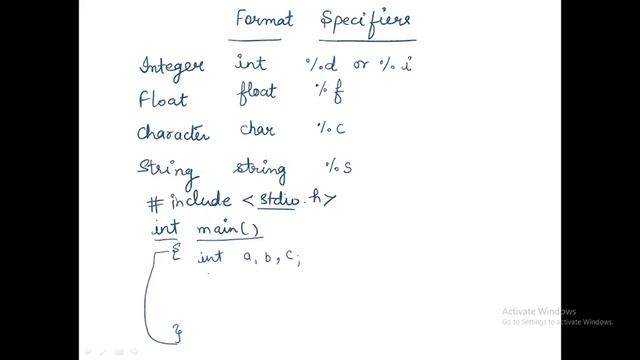 Format Specifiers
Integer int %d or %i
Float float %f
Character char %c
String string %s
#include <stdio.h>
int main()
{ int a, b, c;
}
Activate Windows
Go to Settings to activate Windows.